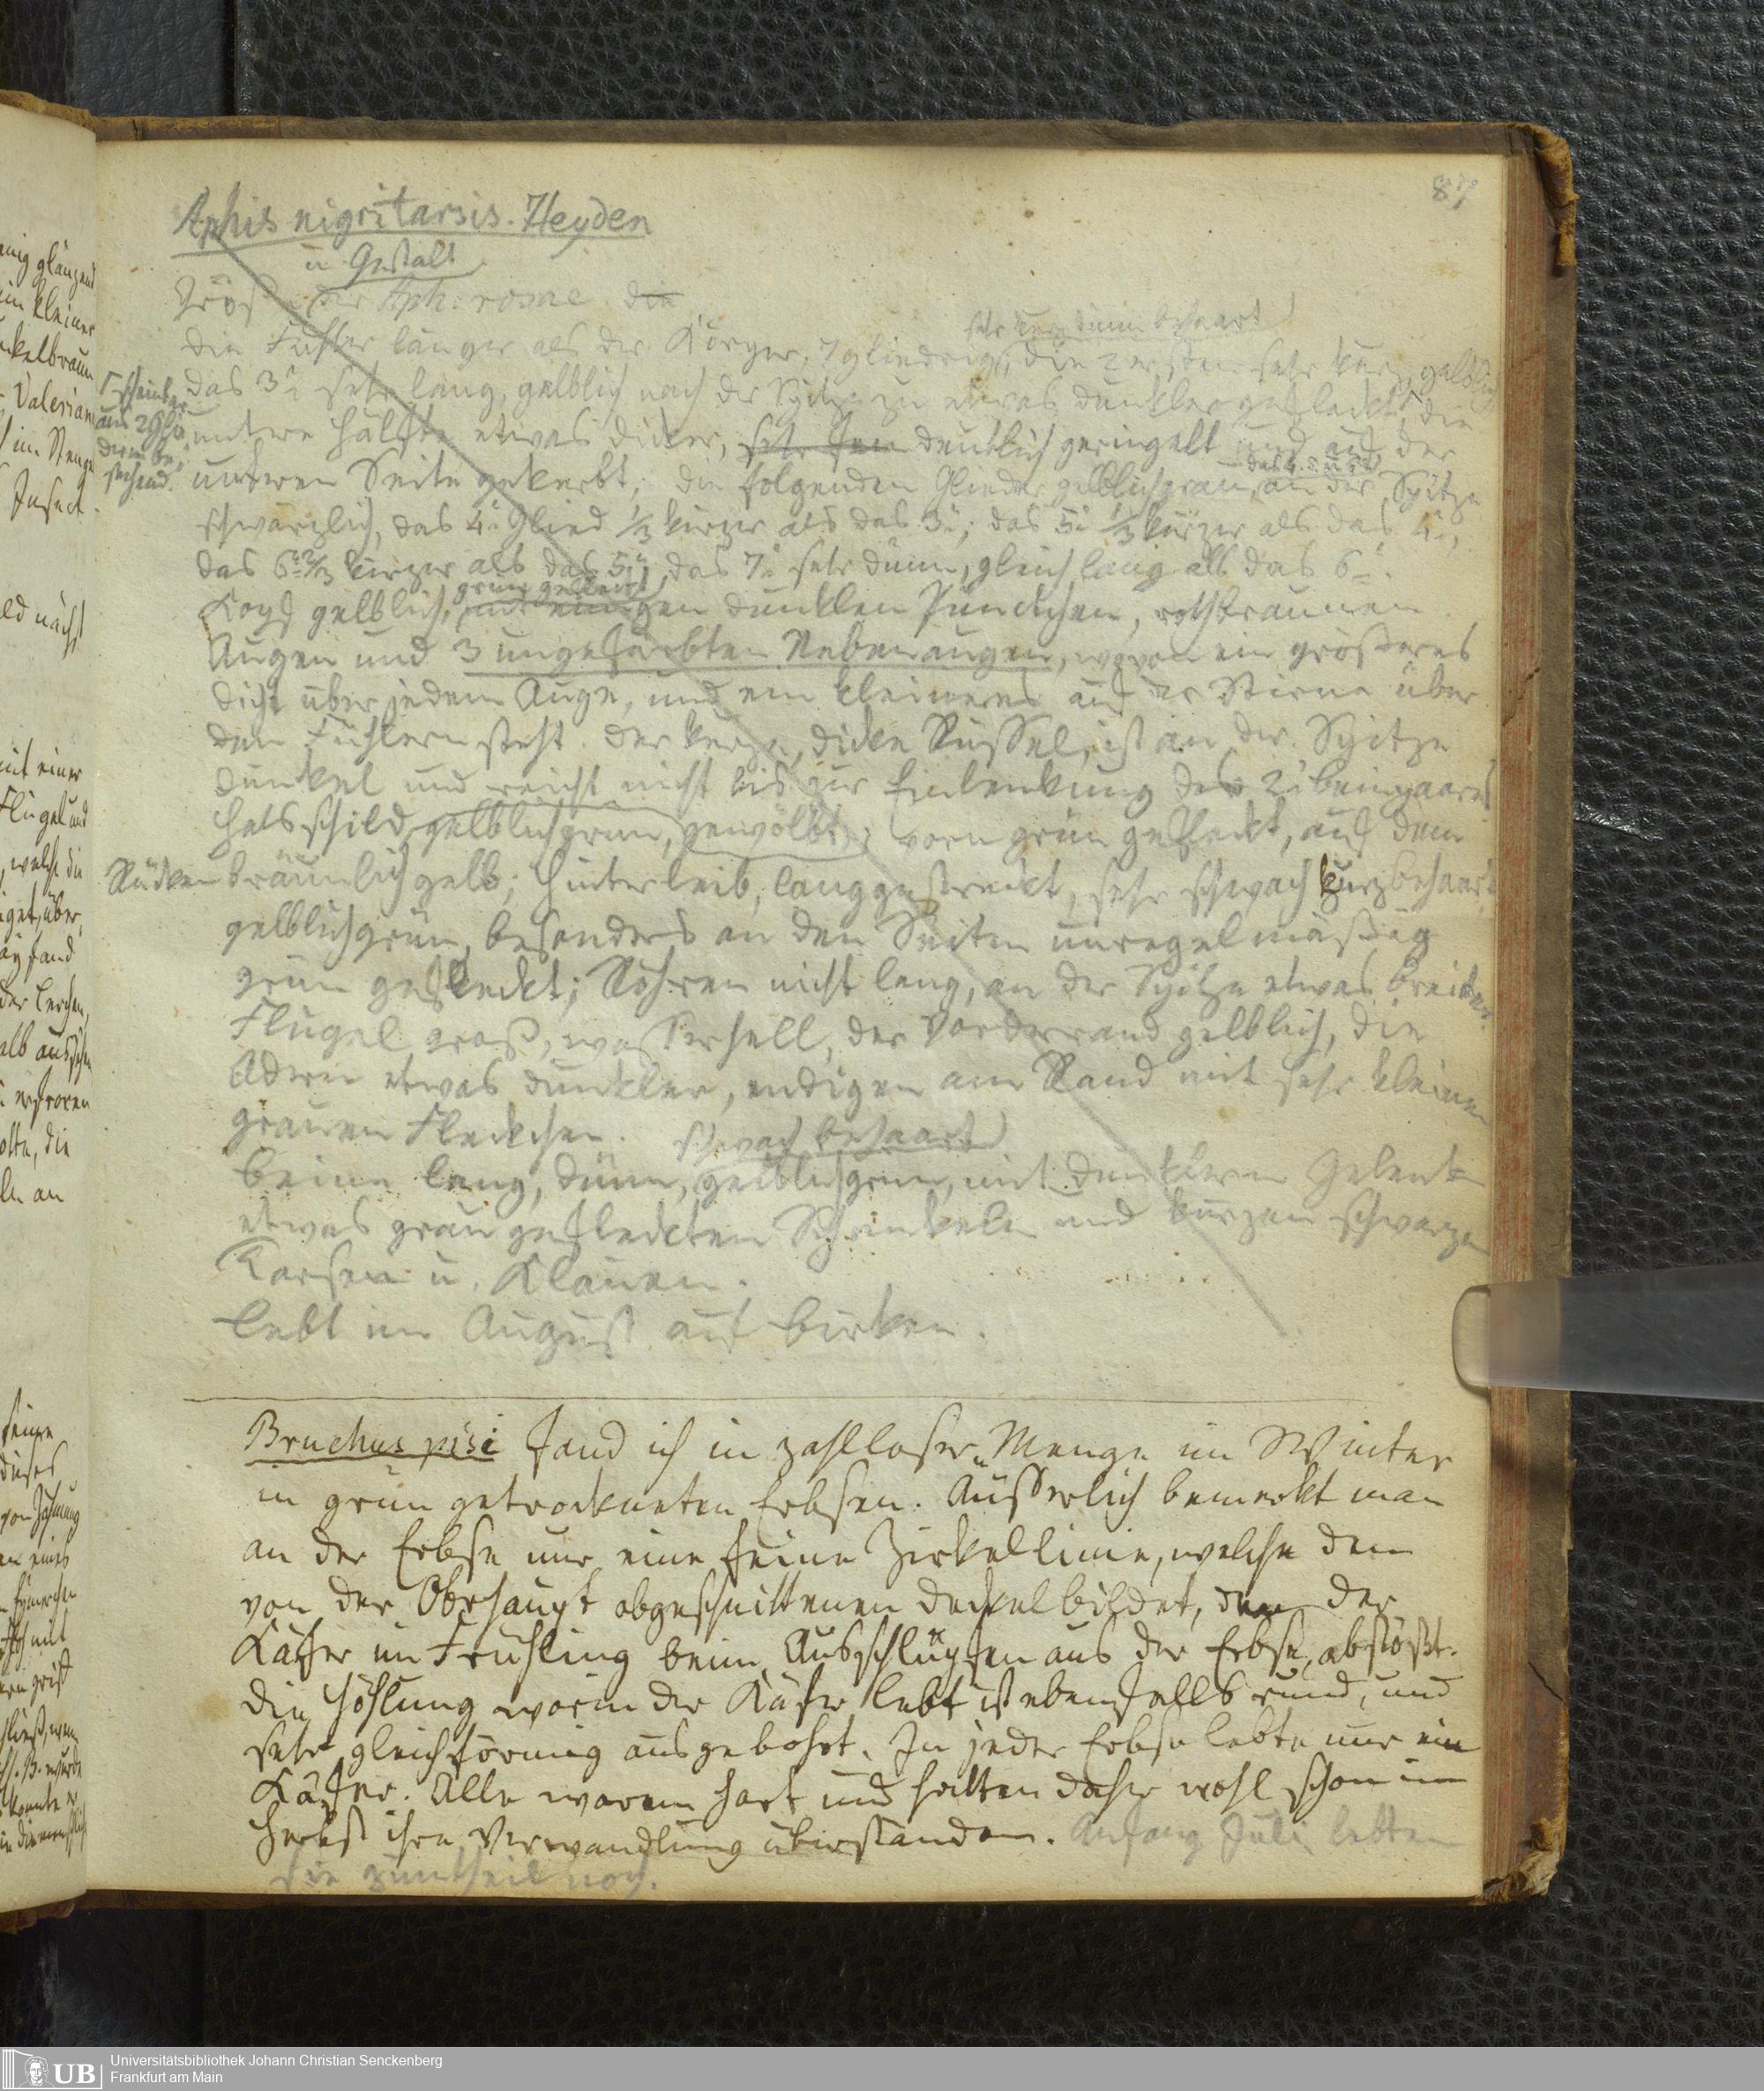 87
Aphis nigritarsis. Heyden
u Gestalt
Größe der Aph. rosae die
sehr kurz dünn behaart
die Fühler länger als der Körper, 7gliedrig, die 2 ersten sehr kurz, gelblich
das 3te sehr lang, gelblich nach der Spitze zu etwas dunkler gefleckt, die
scheinbar
aus 2 Glie
dern be,
stehend.
untere Hälfte etwas dicker, sehr fein deutlich geringelt und auf der
unteren Seite gekerbt; die folgenden Glieder gelblichgrau, an der Spitze
das 4. u 5te
schwärzlich, das 4te Glied 1/3 kürzer als das 3te; das 5te 1/3 kürzer als das 4te,
das 6te 2/3 kürzer als das 5te, das 7te sehr dünn, gleich lang als das 6te.
grün gefleckt
Kopf gelblich, mit einigen dunklen Pünctchen, rothbraunen
Augen und 3 ungefärbten Nebenaugen, wovon ein größeres
dicht über jedem Auge, und ein kleineres auf der Stirne über
den Fühlern steht. der kurze, dicke Rüssel, ist an der Spitze
dunkel und reicht nicht bis zur Einlenkung des 2t beinpaares
Halsschild, gelblichgrün, gewölbt, vorn grün gefleckt, auf dem
Rücken bräunlichgelb; Hinterleib, langgestreckt, sehr schwach kurz behaart,
gelblichgrün, besonders an den Seiten unregelmäßig
grün gefleckt; Röhren nicht lang, an der Spitze etwas breiter.
Flügel groß, wasserhell, der Vorderrand gelblich, die
Adern etwas dunkler, endigen am Rand mit sehr kleinen
grauen Fleckchen.
schwach behaart
beine lang, dünn, gelblichgrün, mit dunkleren Gelenk
etwas grau gefleckten Schenkeln und kurzen schwarzen
Tarsen u. Klauen.
lebt im August auf birken.
Bruchus pisi fand ich in zahlloser Menge im Winter
in grün getrockneten Erbsen. Äusserlich bemerkt man
an der Erbse nur eine feine Zirkellinie, welche den
von der Oberhaupt abgeschnittenen deckel bildet, den der
Käfer im Frühling beim Ausschlüpfen aus der Erbse, abstößt.
die Höhlung worin der Käfer lebt ist ebenfalls rund, und
sehr gleichförmig ausgebohrt. In jeder Erbse lebte nur ein
Käfer. Alle waren hart und hatten daher wohl schon im
Herbst ihre Verwandlung überstanden. Anfang Juli lebten
sie zumtheil noch.
Universitätsbibliothek Johann Christian Senckenberg
Frankfurt am Main
UB